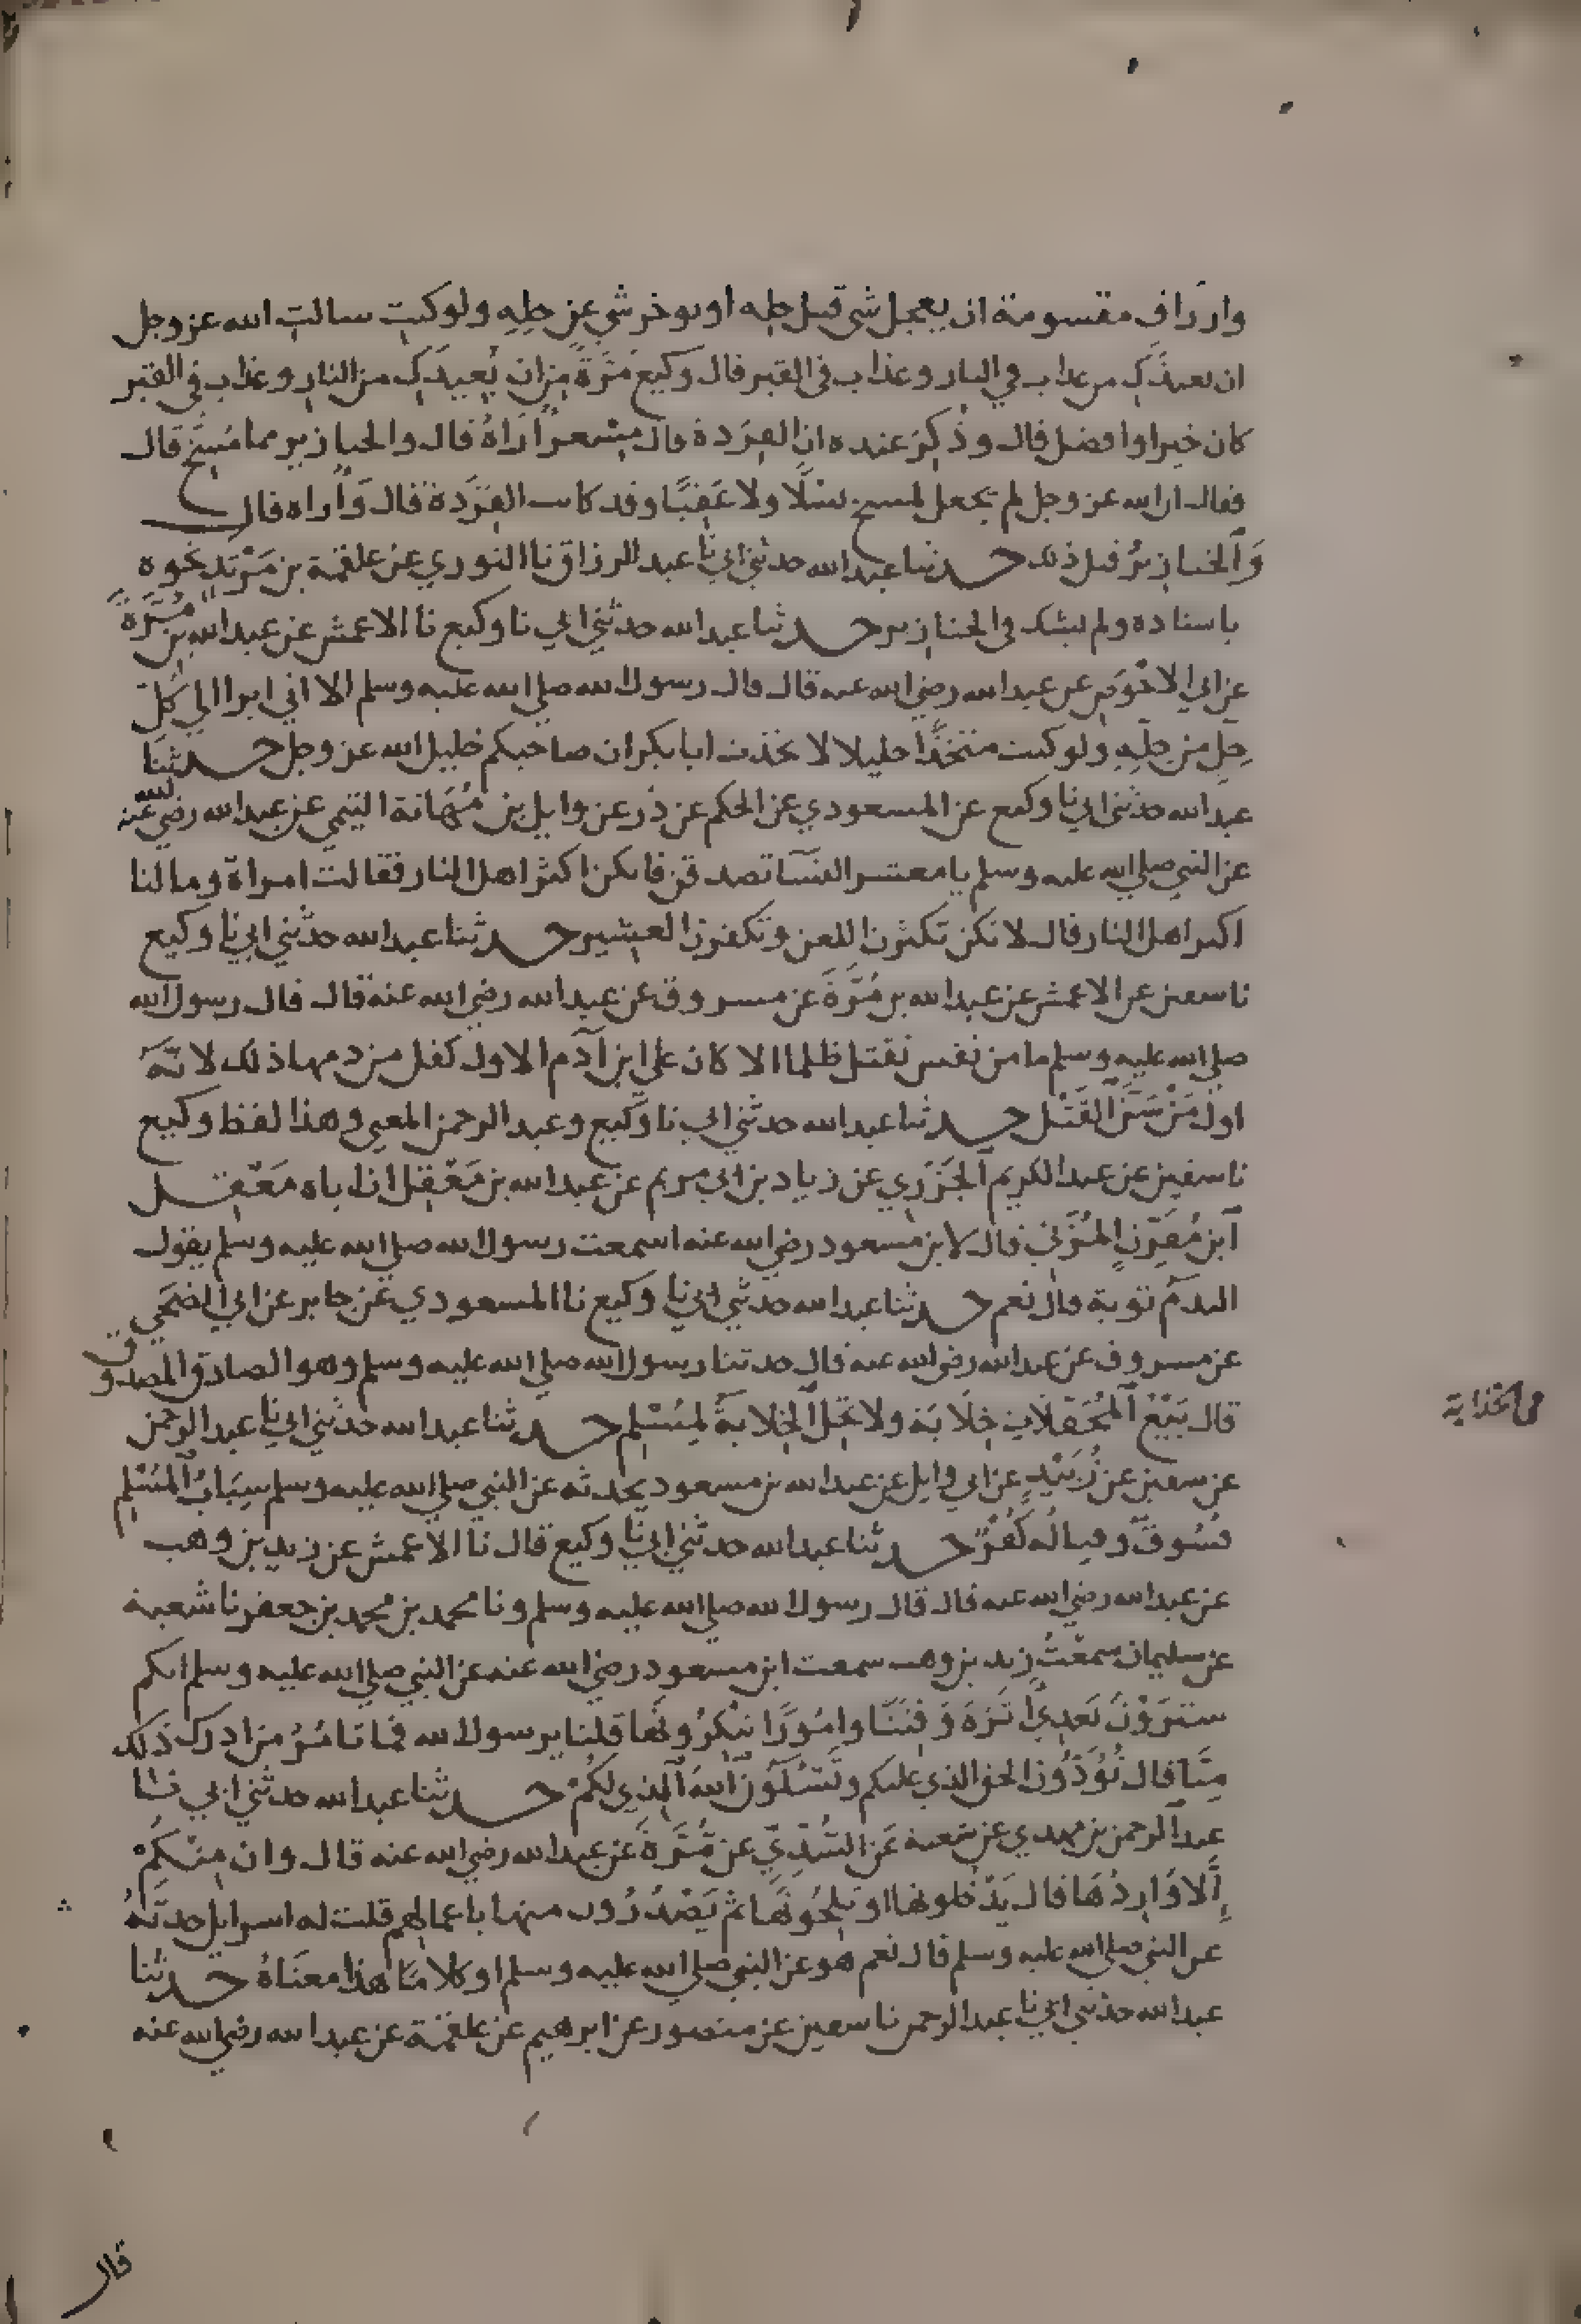 وارزاق مقسومة ان يعجل شي قبل حله او يوخر شي عن حله ولو كنت سالت الله عز وجل
ان يعيذك من عذاب في النار وعذاب في القبر قال وكيع مرة من ان يعيذك من النار وعذاب في القبر
كان خيرا وافضل قال وذكر عنده ان القردة قال مسعر اراه قال والخنازير مما مسخ قال
فقال ان الله عز وجل لم يجعل لمسخ نسلا ولا عقبا وقد كانت القردة قال واراه قال
والخنازير قبل ذلك حدثنا عبد الله حدثني ابي نا عبد الرزاق نا الثوري عن علقمة بن مرثد نحوه
باسناده ولم يشك في الخنازير حدثنا عبد الله حدثني ابي نا وكيع نا الاعمش عن عبد الله بن مرة
عن ابي الاحوص عن عبد الله رضي الله عنه قال قال رسول الله صلي الله عليه وسلم الا اني ابرا الي كل
خل من خله ولو كنت متخذا خليلا لاتخذت ابا بكر ان صاحبكم خليل الله عز وجل حدثنا
عبد الله حدثني ابي نا وكيع عن المسعودي عن الحكم عن ذر عن وايل بن مهانة التيمي عن عبد الله رضي الله عنه
عن النبي صلي الله عليه وسلم يا معشر النسا تصدقن فانكن اكثر اهل النار فقالت امراة وما لنا
اكثر اهل النار قال لانكن تكثرن اللعن وتكفرن العشير حدثنا عبد الله حدثني ابي نا وكيع
نا سفين عن الاعمش عن عبد الله بن مرة عن مسروق عن عبد الله رضي الله عنه قال قال رسول الله
صلي الله عليه وسلم ما من نفس تقتل ظلما الا كان علي ابن ادم الاول كفل من دمها ذلك لانه
اول من سن القتل حدثنا عبد الله حدثني ابي نا وكيع وعبد الرحمن المعني وهذا لفظ وكيع
نا سفين عن عبد الكريم الجزري عن زياد بن ابي مريم عن عبد الله بن معقل ان اباه معقل
ابن مقرن المزني قال لابن مسعود رضي الله عنه اسمعت رسول الله صلي الله عليه وسلم يقول
الندم توبة قال نعم حدثنا عبد الله حدثني ابي نا وكيع نا المسعودي عن جابر عن ابي الضحي
عن مسروق عن عبد الله رضي الله عنه قال حدثنا رسول الله صلي الله عليه وسلم وهو الصادق المصدوق
قال بيع المحفلات خلابة ولا تحل الخلابة لمسلم حدثنا عبد الله حدثني ابي نا عبد الرحمن
عن سفين عن زبيد عن ابي وايل عن عبد الله بن مسعود يحدثه عن النبي صلي الله عليه وسلم سباب المسلم
فسوق وقتاله كفر حدثنا عبد الله حدثني ابي نا وكيع قال نا الاعمش عن زيد بن وهب
عن عبد الله رضي الله عنه قال قال رسول الله صلي الله عليه وسلم ونا محمد بن محمد بن جعفر نا شعبة
عن سليمان سمعت زيد بن وهب سمعت ابن مسعود رضي الله عنه عن النبي صلي الله عليه وسلم انكم
سترون بعدي اثرة وفتنا وامورا تنكرونها قلنا يرسول الله فما تامر من ادرك ذلك
منا قال تودون الحق الذي عليكم وتسلون الله الذي لكم حدثنا عبد الله حدثني ابي نا
عبد الرحمن بن مهدي عن شعبة عن السدي عن مرة عن عبد الله رضي الله عنه قال وان منكم
الا واردها قال يدخلونها او يلجونها ثم يصدرون منها باعمالهم قلت له اسرايل حدثه
عن النبي صلي الله عليه وسلم قال نعم هو عن النبي صلي الله عليه وسلم او كلاما هذا معناه حدثنا
عبد الله حدثني ابي نا عبد الرحمن نا سفين عن منصور عن ابرهيم عن علقمة عن عبد الله رضي الله عنه
قال